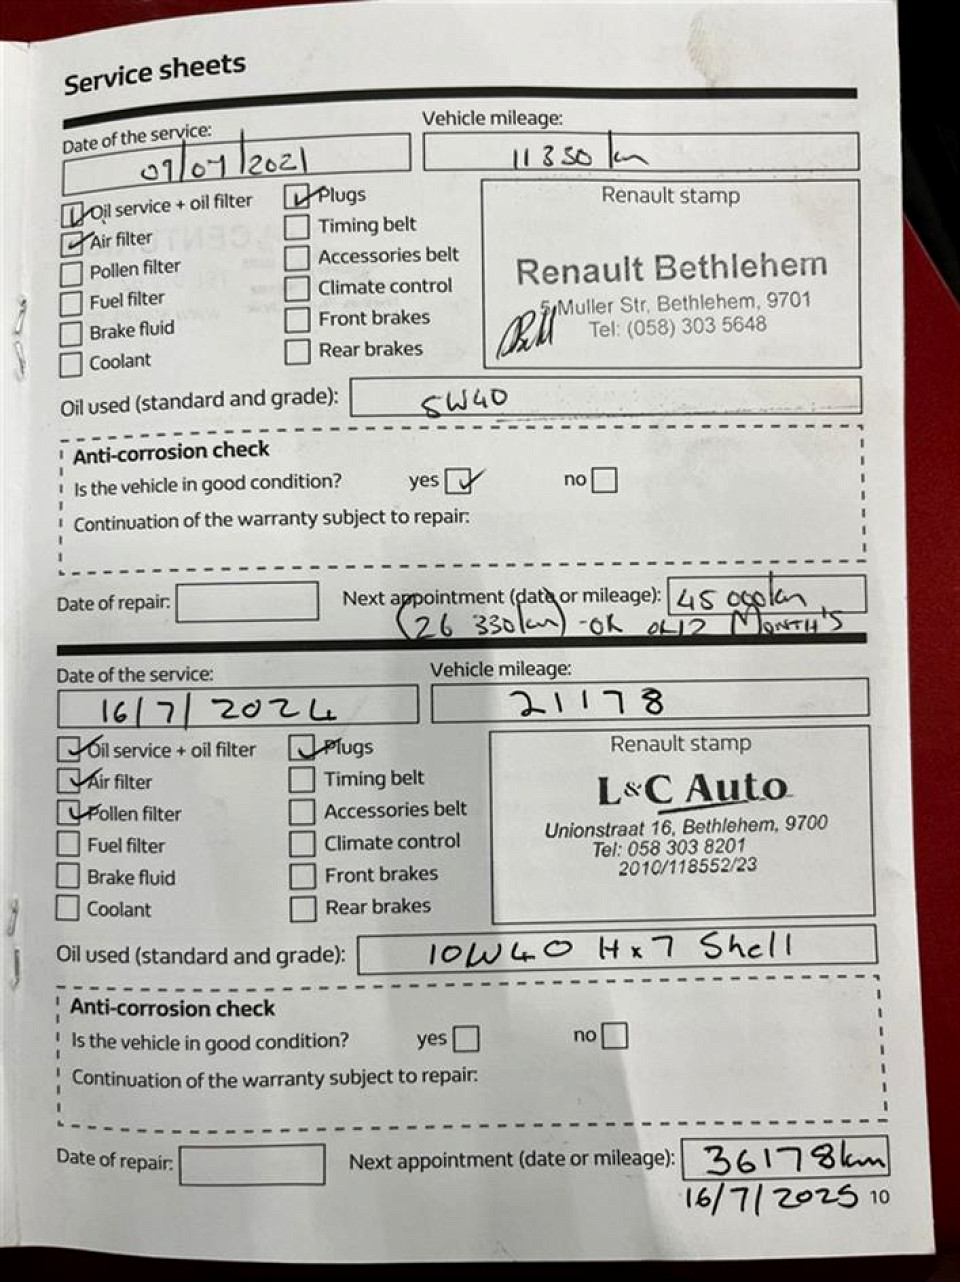 Service sheets
Date of the service: Vehicle mileage:
09/07/2021 11350 km
Oil service + oil filter Plugs Renault stamp
Air filter Timing belt
Pollen filter Accessories belt Renault Bethlehem
Fuel filter Climate control 5 Muller Str, Bethlehem, 9701
Brake fluid Front brakes Tel: (058) 303 5648
Coolant Rear brakes
Oil used (standard and grade): 5W40
Anti-corrosion check
Is the vehicle in good condition? yes no
Continuation of the warranty subject to repair:
Date of repair: Next appointment (date or mileage): 45 000km
(26 330km) -OR 12 MONTH'S
Date of the service: Vehicle mileage:
16/7/2024 21178
Oil service + oil filter Plugs Renault stamp
Air filter Timing belt L&C Auto
Pollen filter Accessories belt Unionstraat 16, Bethlehem, 9700
Fuel filter Climate control Tel: 058 303 8201
Brake fluid Front brakes 2010/118552/23
Coolant Rear brakes
Oil used (standard and grade): 10W40 Hx7 Shell
Anti-corrosion check
Is the vehicle in good condition? yes no
Continuation of the warranty subject to repair:
Date of repair: Next appointment (date or mileage): 36178km
16/7/2025 10